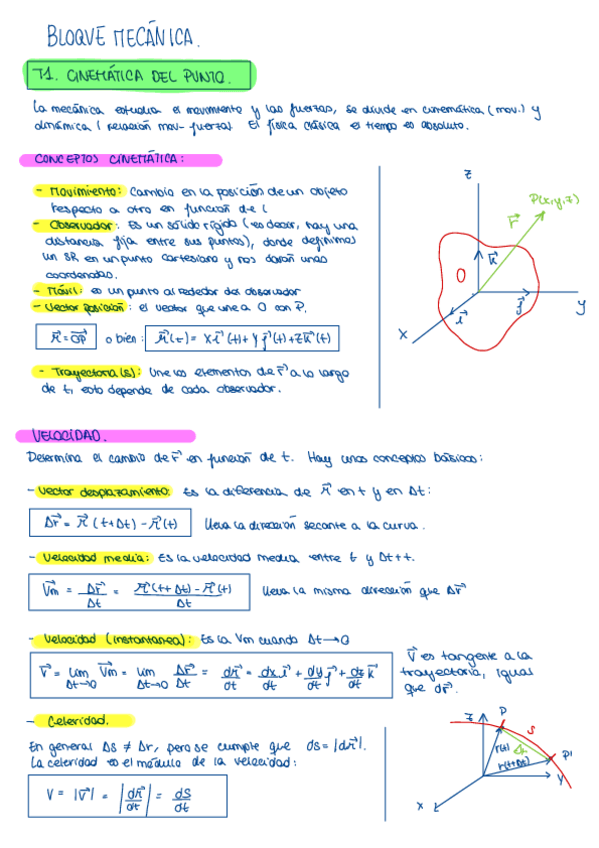 BLOQUE MECÁNICA.
T1. CINEMÁTICA DEL PUNTO.
La mecánica estudia el movimiento y las fuerzas, se divide en cinemática (mov.) y
dinámica (relación mov- fuerza). El física clásica el tiempo es absoluto.
CONCEPTOS CINEMÁTICA:
- Movimiento: Cambio en la posición de un objeto
respecto a otro en función de t
- Observador: Es un sólido rígido (es decir, hay una
distancia fija entre sus puntos), donde definimos
un SR en un punto cartesiano y nos darán unas
coordenadas.
- Móvil: es un punto alrededor del observador
- Vector posición: el vector que une a O con P.
r⃗ = OP⃗ o bien: r⃗(t) = x i⃗(t) + y j⃗(t) + z k⃗(t)
- Trayectoria (s): Une los elementos de r⃗ a lo largo
de t, esto depende de cada observador.
z
P(x,y,z)
r⃗
k⃗
O
j⃗
i⃗
y
x
VELOCIDAD.
Determina el cambio de r⃗ en función de t. Hay unos conceptos básicos:
- Vector desplazamiento: Es la diferencia de r⃗ en t y en Δt:
Δr⃗ = r⃗(t+Δt) - r⃗(t) lleva la dirección secante a la curva.
- Velocidad media: Es la velocidad media entre t y Δt+t.
V⃗m = Δr⃗/Δt = (r⃗(t+Δt) - r⃗(t))/Δt lleva la misma dirección que Δr⃗
- Velocidad (instantánea): Es la Vm cuando Δt→0
V⃗ = lim Δt→0 V⃗m = lim Δt→0 Δr⃗/Δt = dr⃗/dt = dx/dt i⃗ + dy/dt j⃗ + dz/dt k⃗
V⃗ es tangente a la
trayectoria, igual
que dr⃗.
- Celeridad.
En general Δs ≠ Δr, pero se cumple que ds = |dr⃗|.
La celeridad es el módulo de la velocidad:
V = |V⃗| = |dr⃗/dt| = ds/dt
z
P
s
r(t)
Δr
P'
r(t+Δt)
y
x